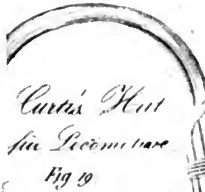 Curtis Hut
für Locomotive
Fig 19